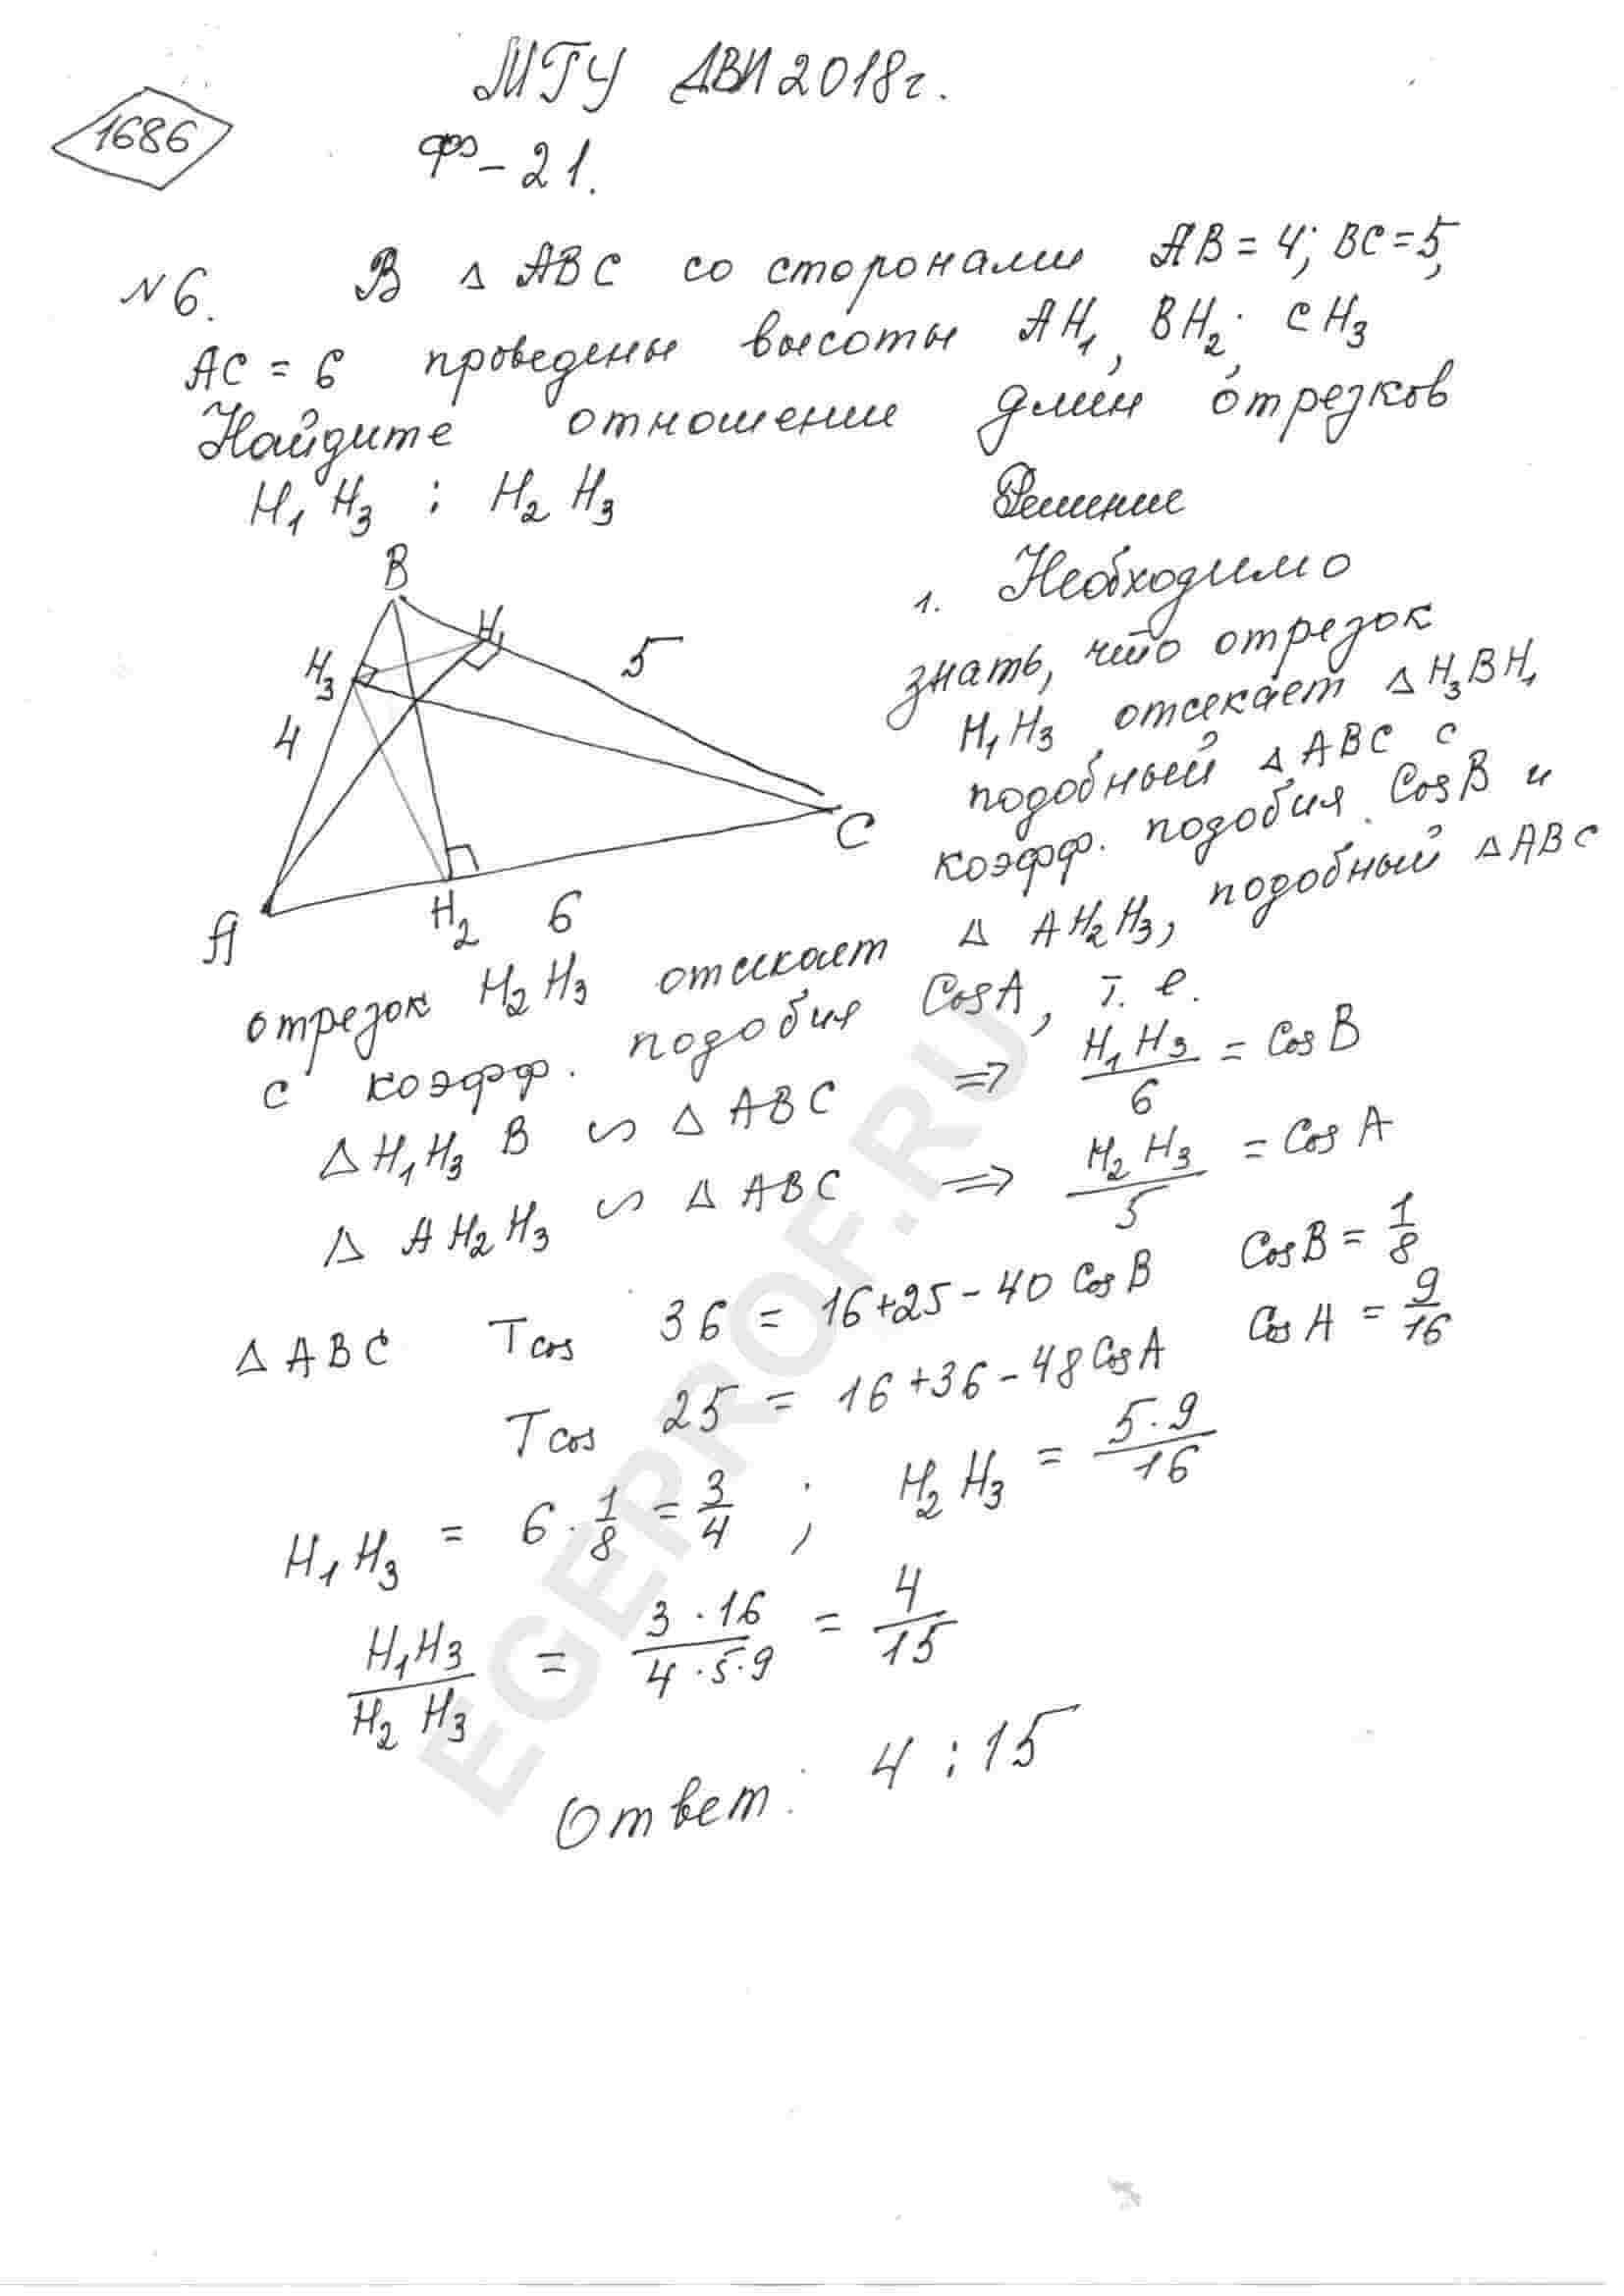 МГУ ДВИ 2018г.
1686
ф-21.
№6. В △ ABC со сторонами AB = 4; BC = 5,
AC = 6 проведены высоты AH₁, BH₂, CH₃
Найдите отношение длин отрезков
H₁H₃ : H₂H₃
Решение
B
H₁
H₃
5
4
C
A
H₂
6
1. Необходимо
знать, что отрезок
H₁H₃ отсекает △H₃BH₁
подобный △ABC с
коэфф. подобия CosB и
отрезок H₂H₃ отсекает △ AH₂H₃, подобный △ABC
с коэфф. подобия CosA, т. е.
△H₁H₃B ∽ △ABC ⇒ H₁H₃/6 = CosB
△ AH₂H₃ ∽ △ABC ⇒ H₂H₃/5 = CosA
△ABC Tcos 36 = 16+25-40 CosB CosB = 1/8
Tcos 25 = 16+36-48CosA CosA = 9/16
H₁H₃ = 6 · 1/8 = 3/4 ; H₂H₃ = 5·9/16
H₁H₃/H₂H₃ = 3·16/4·5·9 = 4/15
Ответ: 4 : 15
EGEPROF.RU